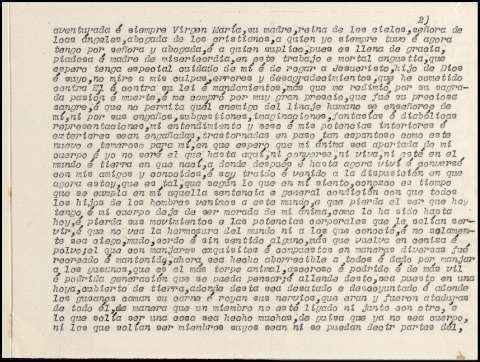 2)
aventurada é siempre Virgen María, su madre, reina de los cielos, señora de
los ángeles, abogada de los cristianos, a quien yo siempre tuve é agora
tengo por señora y abogada, é a quien suplico, pues es llena de gracia,
piadosa é madre de misericordia, en este trabajo e mortal angustia, que
espero tenga especial cuidado de mi é de rogar a Jesucristo, hijo de Dios
é suyo, no mire a mis culpas, errores y desagradecimientos, que he cometido
contra El é contra su lei é mandamientos, mas que me redimió por su sagra-
da pasión é muerte, é me compró por muy gran precio, que fué su preciosa
sangre, é que no permita quel enemigo del linaje humano se enseñoree de
mí, ni por sus engaños, subgestiones, imaginaciones, fantasías é diabólicas
representaciones, mi entendimiento y seso é mis potencias interiores é
exteriores sean engañadas, trastornadas en paso tan espantoso como este
nuevo e temeroso para mí, en que espero que mi ánima sea apartada de mi
cuerpo é yo no seré el que hasta aquí, ni converse, ni viva, ni esté en el
mundo é tierra en que nací, a donde después é hasta agora viví é conversé
con mis amigos y conocidos, é soy traído é venido a la disposición en que
agora estoy, que es tal, que según lo que en mi siento, conozco es tiempo
que se cumpla en mí aquella sentencia e general condición con que todos
los hijos de los hombres venimos a este mundo, e que pierda el ser que hoy
tengo é mi cuerpo deje de ser morada de mi ánima, como lo ha sido hasta
hoy, é pierda sus movimientos e las potencias corporales que le solían ser-
vir, é que no vea la hermosura del mundo ni a los que conoció, é no solamen-
te sea ciego, mudo, sordo é sin sentido alguno, más que vuelva en ceniza é
polvo, el que con manjares exquisitos é compuestos en maneras diversas fué
recreado é mantenido, ahora sea hecho aborrecible a todos é dado por manjar
a los gusanos, que es el más torpe animal, asqueroso é podrido é de más vil
é podrida generación que se pueda pensar, é allende desto, sea puesto en una
hoya, cubierto de tierra, adonde desta sea desatado é descoyuntado é adonde
los gusanos coman su carne é royan sus nervios, que eran y fueron ataduras
de todo él, de manera que un miembro no esté ligado ni junto con otro, e
lo que solía ser una cosa sea hecho muchas, de guisa que ya no sea cuerpo,
ni los que solían ser miembros suyos sean ni se puedan decir partes dél,